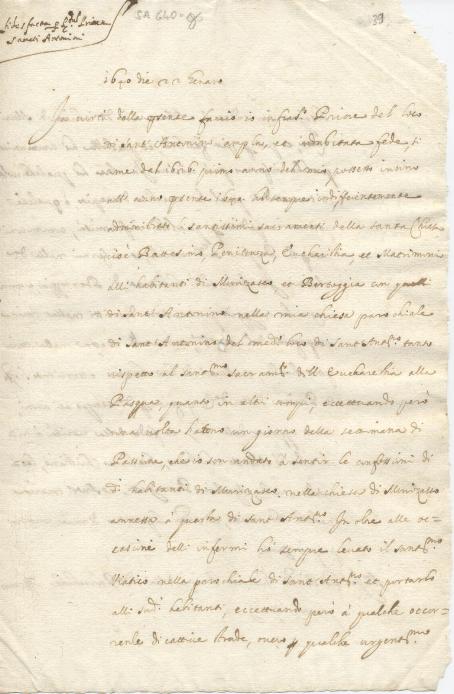 fides facta p. Prior
Sancti Antonini
SA 640
39
1640 die 22 Genaro
In virtù della presente faccio io infras.to Priore del loco
di Sant Antonino ampla, et indubitata fede si
come dal 1616 primo anno del mio possesso insino
nell anno presente 1640 hò sempre indifferentemente
administrati i santissimi sacramenti della santa Chiesa
cioè Battesimo, Penitenza, Eucharistia et Matrimoni
all' habitanti di Munizasco et Bertaggia con quelli
di Sant Antonino nella mia chiesa parochiale
di Sant Antonino del med.mo loco di Sant Ant.o tanto
rispetto al sant.mo sacram.to dell Eucharestia alla
Pasqua quanto in altri tempi, eccettuando però
una volta hanno un giorno della settimana di
Passione, che io son andato à sentir le confessioni di
d.i habitanti di Munizasco nella chiesa di Munizasco
annessa à questa di Sant Ant.no In oltre alle oc-
casioni delli infermi hò sempre levato il sant.mo
Viatico nella parochiale di Sant Ant.no et portarlo
alli sud.i habitanti, eccettuando però à qualche occor-
renze di cattive strade, overo p qualche urgent.mo